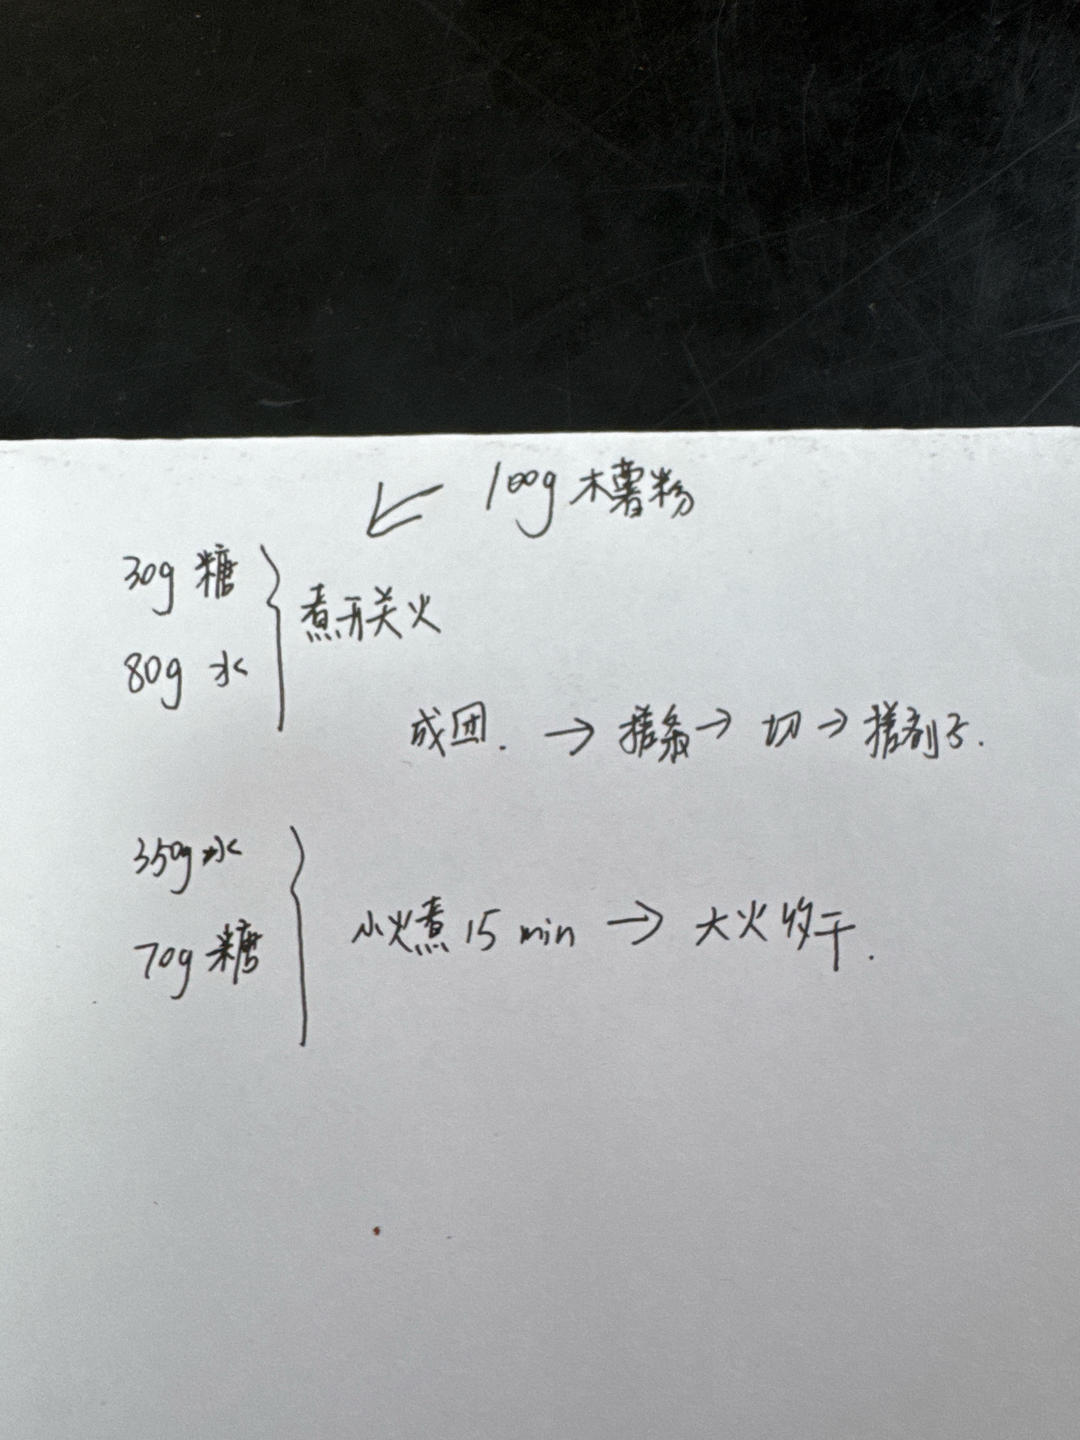 100g 木薯粉
30g 糖
煮开关火
80g 水
成团. → 搓条 → 切 → 搓剂子.
350g 水
小火煮 15 min → 大火收干.
70g 糖